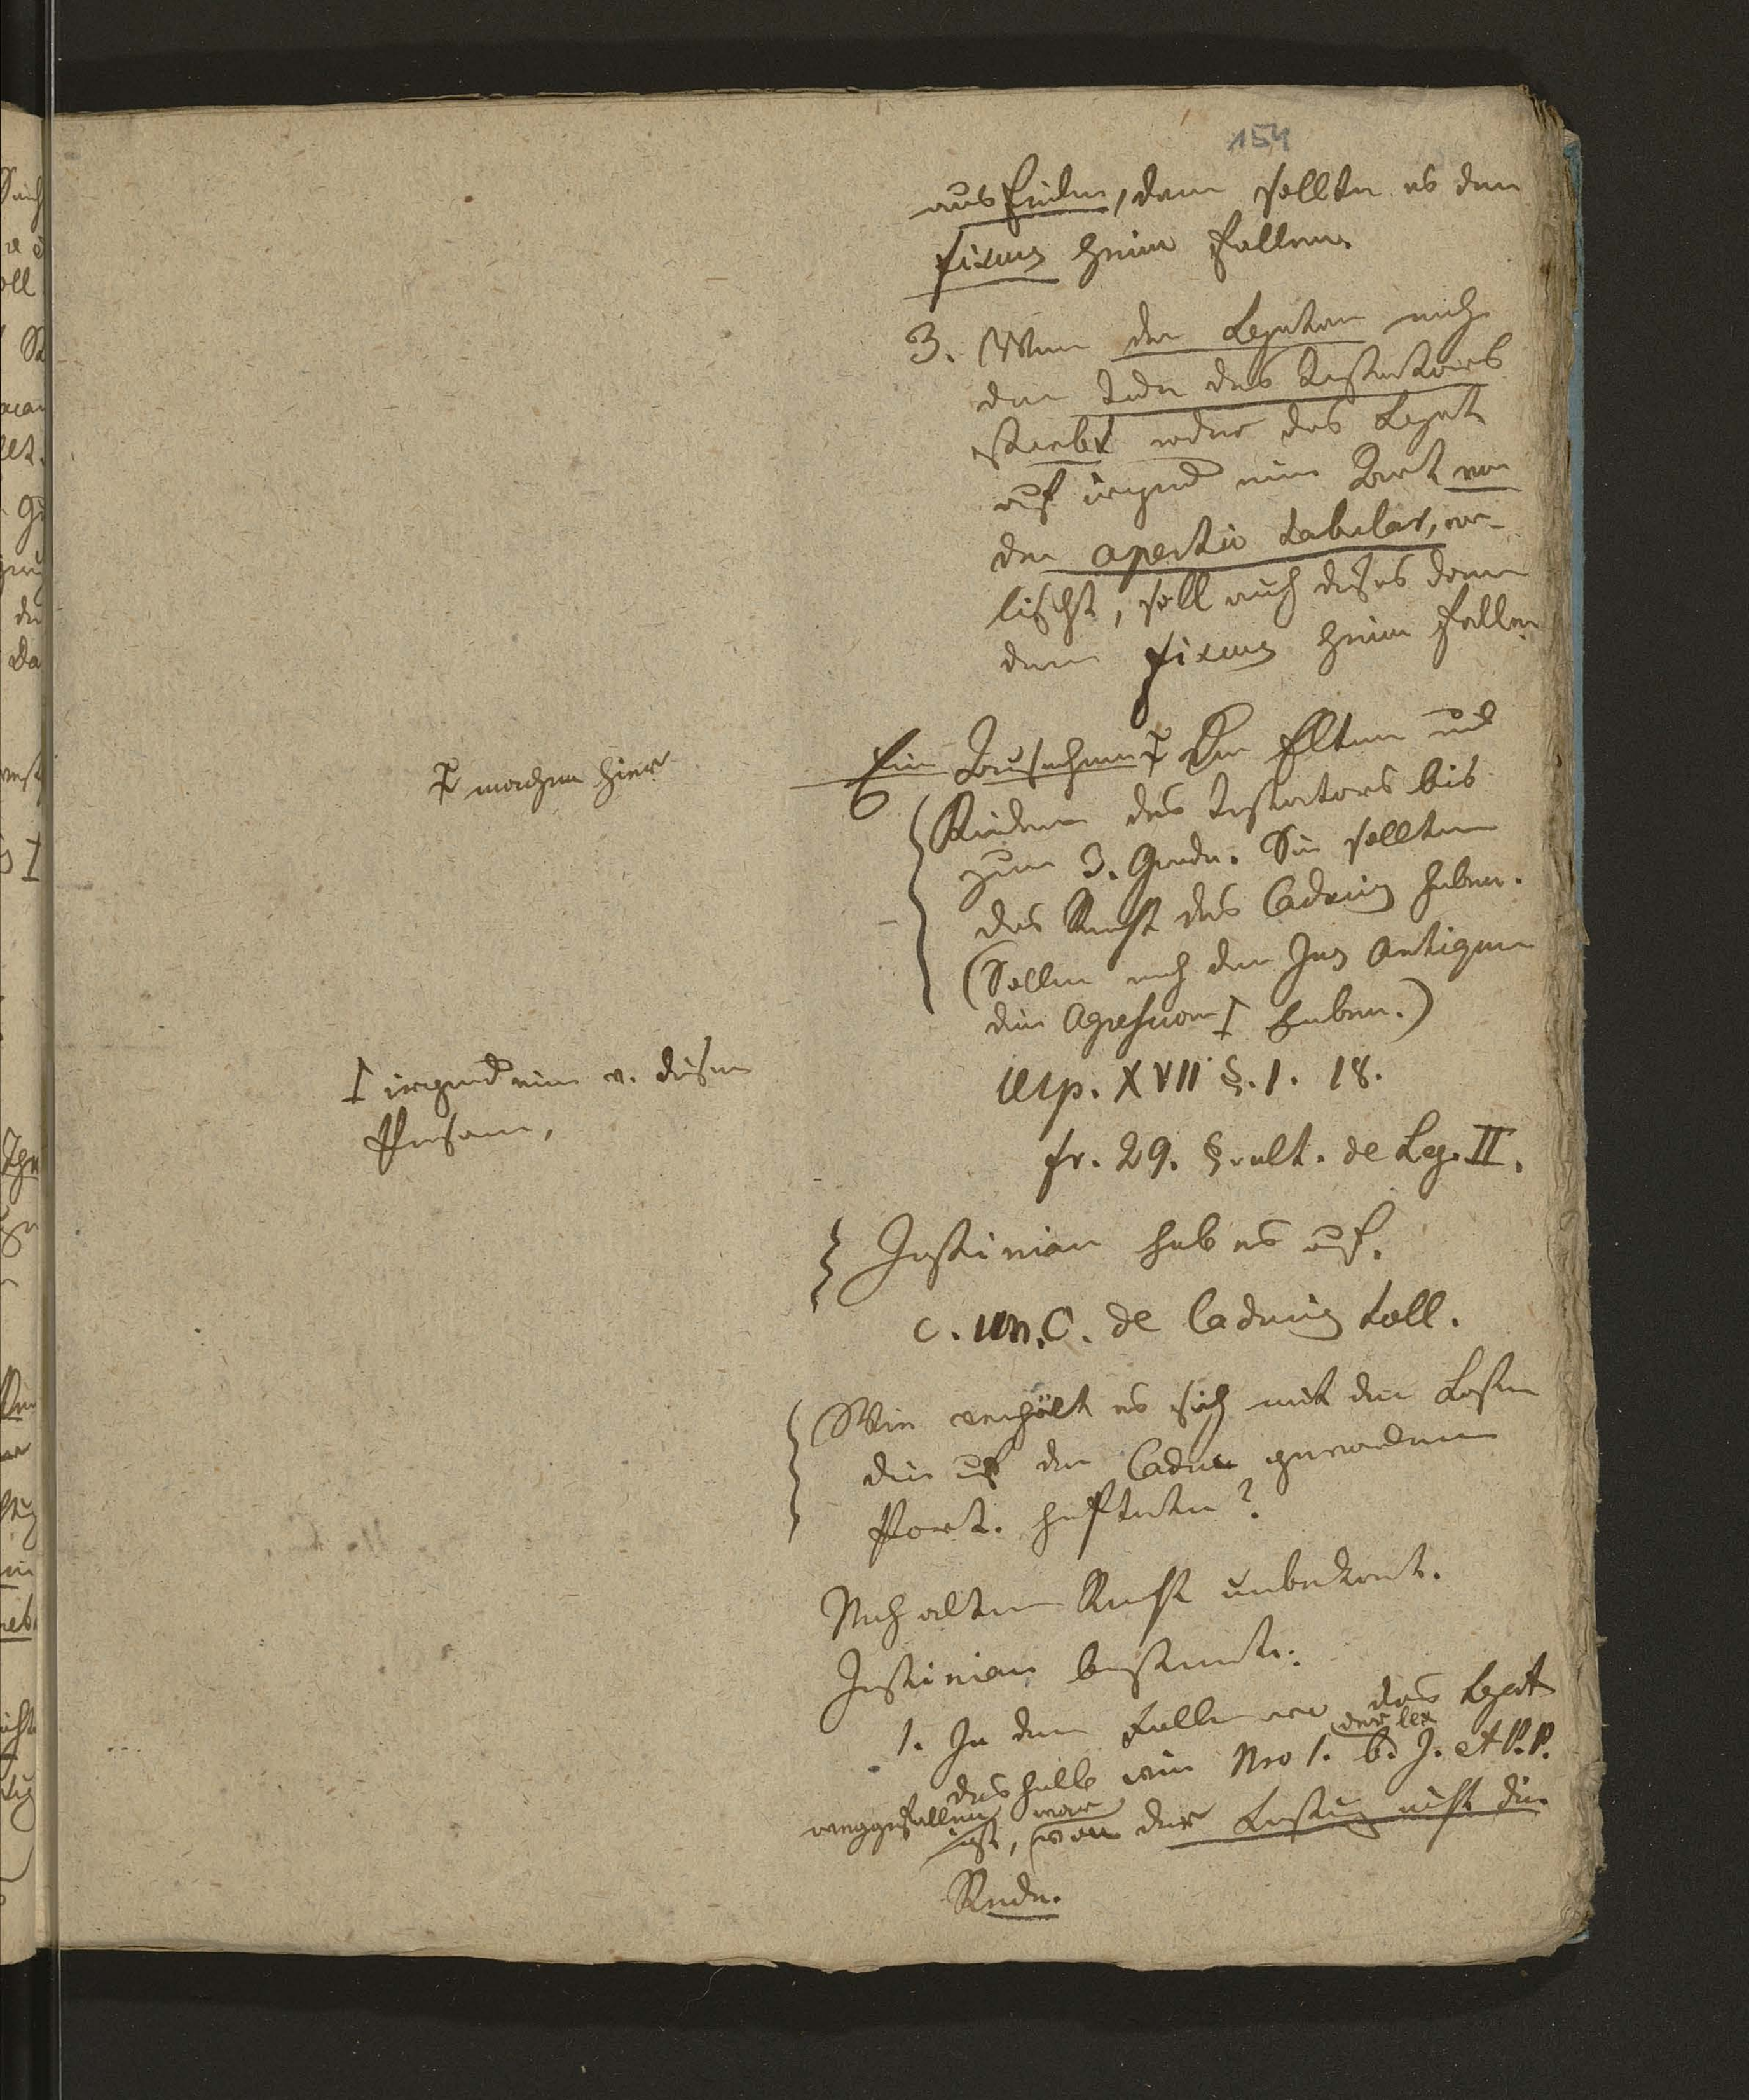 154
ausfinden, dann sollte es dem
Fiscus heim fallen.
3. Wenn der Legatar nach
dem Tode des Testators
stirbt oder das Legat
auf irgend eine Art vor
der apertio tabular, er-
lischt, soll auch dieses dann
dem Fiscus heim fallen
Eine Ausnahme Die Eltern und
machen hier
Kinder des Testators bis
zum 3. Grade. Sie sollten
das Recht des Caducus haben.
(Sollen nach dem Jus Antiquum
die haben.)
irgend eine v. diesen
Person,
Ulp. XVII §. 1. 18.
fr. 29. §. ult. de Leg. II.
Justinian hob es auf.
c. un. C. de Caducis toll.
Wie verhält es sich mit den Lasten
die auf der Caduc gewordenen
Port. hafteten?
Nach altem Recht unbekannt.
Justinian bestimmte:
1. In dem Falle wo das Legat
der lex
deshalb wie Nro 1. b. J. et P. P.
weggefallen war
ist, von der Lastung nicht die
Rede.